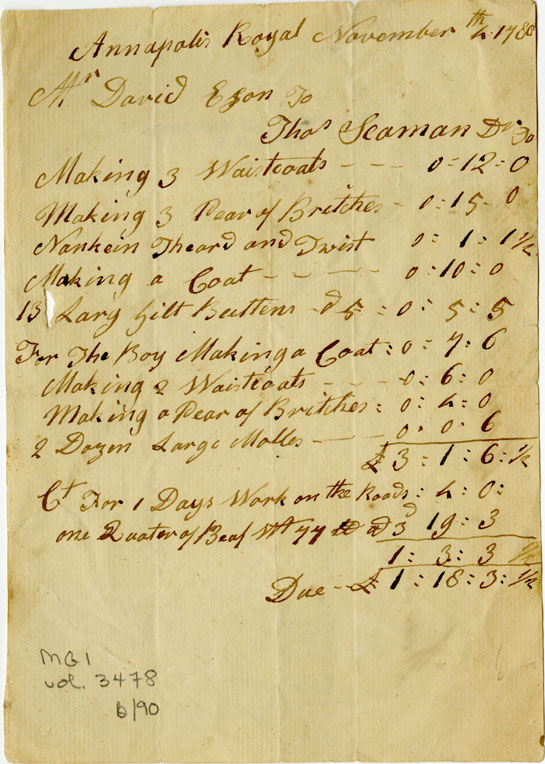 Annapolis Royal November 4th 1788
Mr David Eson To
Thos Seaman Dr To
Making 3 Waistcoats - - - 0=12=0
Making 3 Pear of Britches - 0:15-0
Nankein Theard and Twist 0:1:1 1/2
Making a Coat - - - - - 0:10=0
13 Larg Gilt Buttens d 5=0:5:5
For The Boy Making a Coat:0:7:6
Making 2 Waistcoats - - - 0:6:0
Making a Pear of Britches: 0:4:0
2 Dozen Large Molles - - - 0:0:6
£3:1:6:1/2
Ct For 1 Days Work on the Roads: 4:0:
one Quater of Beaf Wt 77 lb d 3 19:3
1:3:3 1/2
Due - £1:18:3:1/2
MG1
vol. 3478
6/90